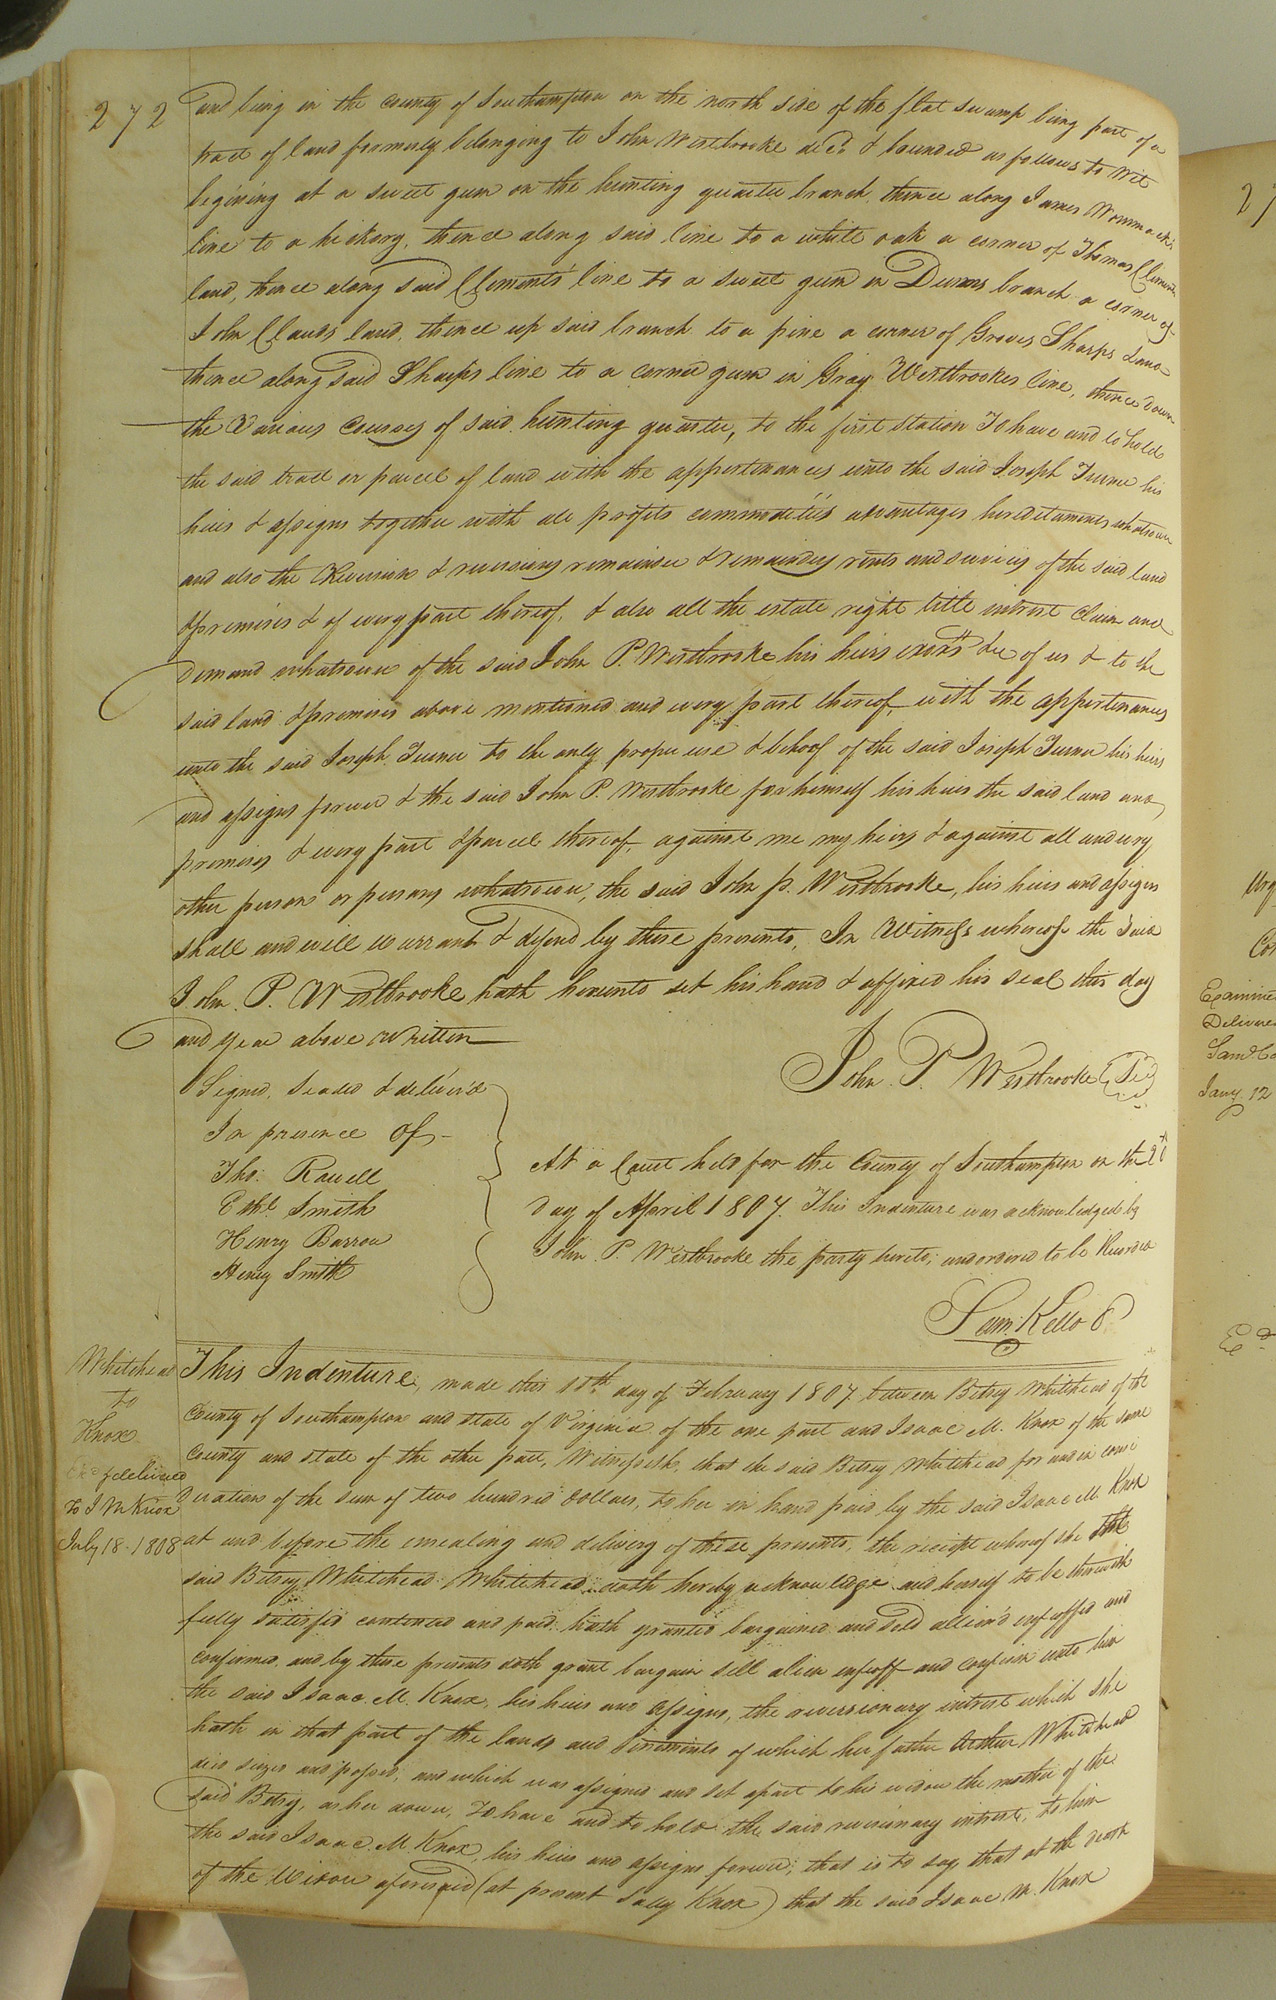 272
and being in the county of Southampton on the north side of the flat swamp being part of a
tract of land formerly belonging to John Westbrooke dec'd & bounded as follows to wit
begining at a sweet gum on the hunting quarter branch, thence along James Wommacks
line to a hickory, thence along said line to a white oak a corner of Thomas Clements
land, thence along said Clements line to a sweet gum in Dunns branch a corner of
John Clauds land, thence up said branch to a pine a corner of Groves Sharps land
thence along said Sharps line to a corner gum in Gray Westbrookes line, thence down
the various courses of said hunting quarter, to the first station To have and to hold
the said tract or parcel of land with the appertinances unto the said Joseph Turner his
heirs & assigns together with all profits commodities advantages hereditaments whatsoever
and also the Reversion & reversions remainder & remainders rents and services of the said land
& premises & of every part thereof, & also all the estate right title intrest claim and
demand whatsoever of the said John P. Westbrooke his heirs exors &c of us & to the
said land & premises above mentioned and every part thereof, with the appertinances
unto the said Joseph Turner to the only proper use & behoof of the said Joseph Turner his heirs
and assigns forever & the said John P. Westbrooke for himself his heirs the said land and
premises & every part & parcel thereof, against me my heirs & against all and every
other person or persons whatsoever, the said John P. Westbrooke, his heirs and assigns
shall and will warrant & defend by these presents, In Witness whereof the said
John P. Westbrooke hath hereunto set his hand & affixed his seal this day
and year above written
John P. Westbrooke
Signed, sealed & deliver'd
In presence of
Tho: Rowell
Edm: Smith
Henry Barrow
Henry Smith
At a Court held for the County of Southampton on the 20th
day of April 1807. This Indenture was acknowledged by
John P. Westbrooke the party hereto, and ordered to be Recorded
Sam. Kello
Whitehead
to
Knox
delivered
to I M Knox
July 18. 1808
This Indenture, made this 18th day of February 1807 between Betsy Whitehead of the
County of Southampton and state of Virginia of the one part and Isaac M. Knox of the same
County and state of the other part, Witnesseth, that the said Betsy Whitehead for and in consi
deration of the sum of two hundred dollars, to her in hand paid by the said Isaac M. Knox
at and before the ensealing and delivery of these presents, the receipt whereof she the
said Betsey Whitehead Whitehead doth hereby acknowledge and herself to be therewith
fully satisfied contented and paid hath granted bargained and sold aliened enfeoffed and
confirmed and by these presents doth grant bargain sell alien enfeoff and confirm unto him
the said Isaac M. Knox, his heirs and assigns, the reversionary intrest which she
hath in that part of the lands and tenements of which her father Arthur Whitehead
died siezed and possed; and which was assigned and set apart to his widow the mother of the
said Betsy, as her dower, To have and to hold the said reversionary intrest, to him
the said Isaac M. Knox, his heirs and assigns forever; that is to say, that at the death
of the widow aforesaid (at present Sally Knox) that the said Isaac M. Knox
27
Examined
Delivered
Jany. 12